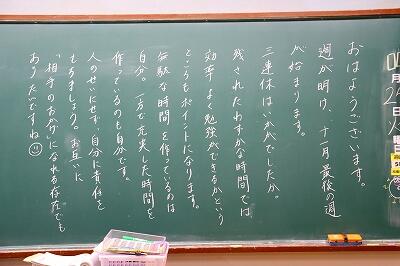 おはようございます。
週が明け、十一月最後の週
が始まります。
三連休はいかがでしたか。
残されたわずかな時間では
効率よく勉強ができるかという
ところもポイントになります。
無駄な時間を作っているのは
自分。一方で充実した時間を
作っているのも自分です。
人のせいにせず、自分に責任を
もちましょう。お互いに
「相手のおかげ」になれる存在でも
ありたいですね
月
日